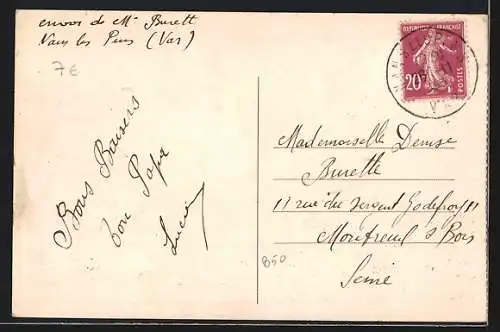 envoi de Mr Burett
Vans les Pins (Var)
7€
Bons Baisers
ton Papa
Lucien
RÉPUBLIQUE FRANÇAISE
20c
POSTES
VAR
Mademoiselle Denise
Burette
11 rue du sergent Godefroy 11
Montreuil s Bois
Seine
B50